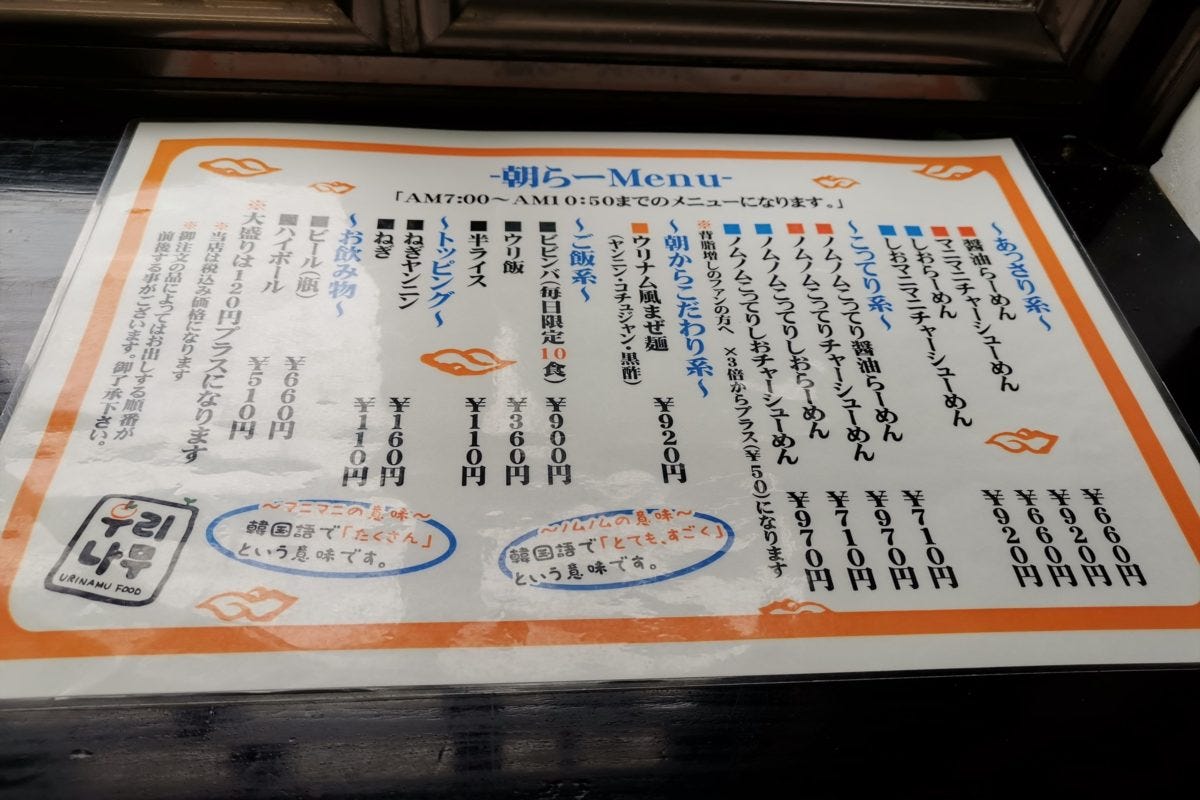 -朝らーMenu-
「AM7:00～AM10:50までのメニューになります。」
～あっさり系～
■醤油らーめん ¥660円
■マニマニチャーシューめん ¥920円
■しおらーめん ¥660円
■しおマニマニチャーシューめん ¥920円
～こってり系～
■ノムノムこってり醤油らーめん ¥710円
■ノムノムこってりチャーシューめん ¥970円
■ノムノムこってりしおらーめん ¥710円
■ノムノムこってりしおチャーシューめん ¥970円
※背脂増しのファンの方へ ×3倍からプラス(¥50)になります
～朝からこだわり系～
■ウリナム風まぜ麺 ¥920円
(ヤンニン・コチュジャン・黒酢)
～ご飯系～
■ビビンバ(毎日限定10食) ¥900円
■ウリ飯 ¥360円
■半ライス ¥110円
～トッピング～
■ねぎヤンニン ¥160円
■ねぎ ¥110円
～お飲み物～
■ビール(瓶) ¥660円
■ハイボール ¥510円
※大盛りは120円プラスになります
※当店は税込み価格になります
※御注文の品によってはお出しする順番が
前後する事がございます。御了承下さい。
～ノムノムの意味～
韓国語で「とても、すごく」
という意味です。
～マニマニの意味～
韓国語で「たくさん」
という意味です。
우리
나무
URINAMU FOOD